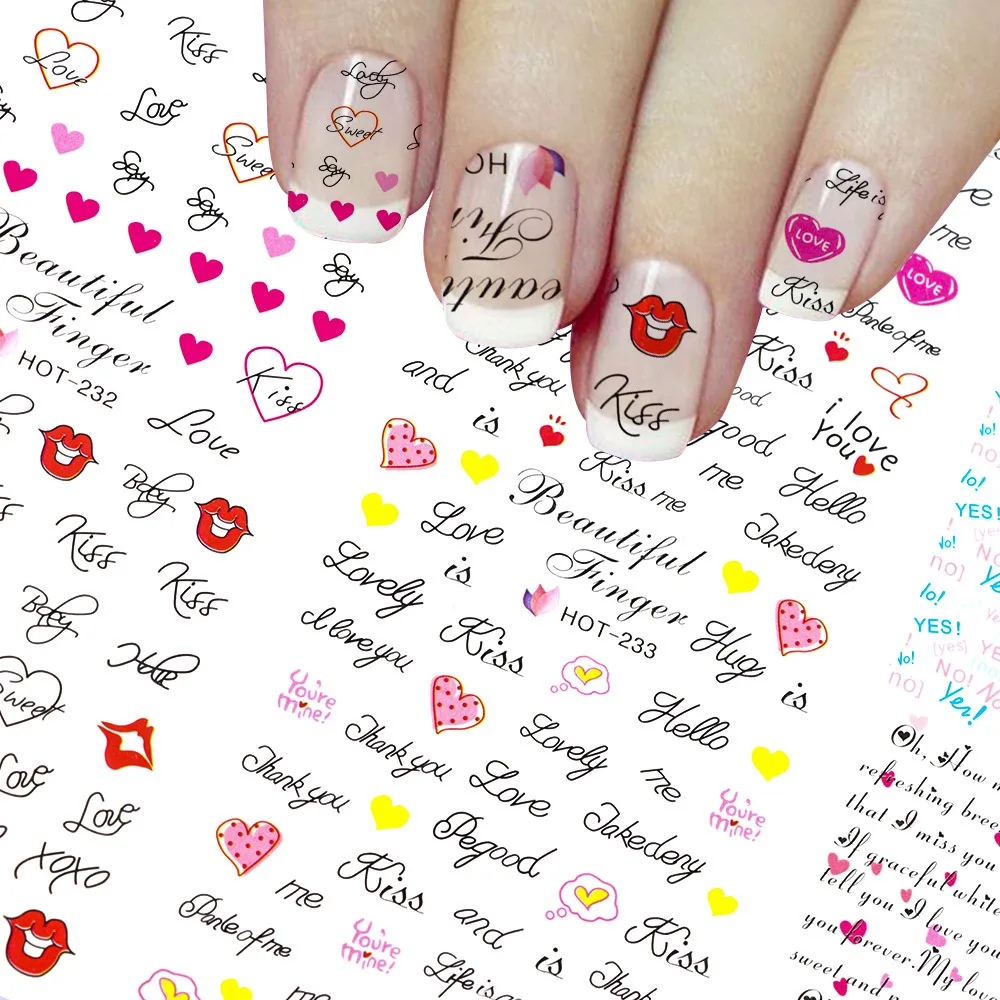 Kiss
Love
Love
Sweet
Sexy
Sexy
Sexy
Beautiful
Finger
HOT-232
Kiss
Love
Baby
Kiss
Kiss
Baby
Sweet
Love
Love
XOXO
Lovely
Sweet
Sexy
Sexy
HO
Fin
eauti
Kiss
Life is
LOVE
Kiss
me
LOVE
Parle of me
Thank you
and
is
Kiss
good
i love
You
good
me
Hello
Kiss me
Jakedeny
Beautiful
Finger
HOT-233
Love
is
Lovely
I love you
Kiss
Hug
is
You're
mine!
Hello
Thank you
Lovely
me
Thank you
Love
Jakedeny
You're
mine!
Pegood
me
Kiss
Kiss
Parle of me
You're
mine!
and
is
Life is
lo!
No!
no]
lo!
YES!
lo!
NO
no]
lo!
YES!
lo!
(yes)
NO!
no]
Yer!
Oh, How m
refreshing bree
that I miss you
If graceful white
tell you I love you
you forever.My love
sweet and